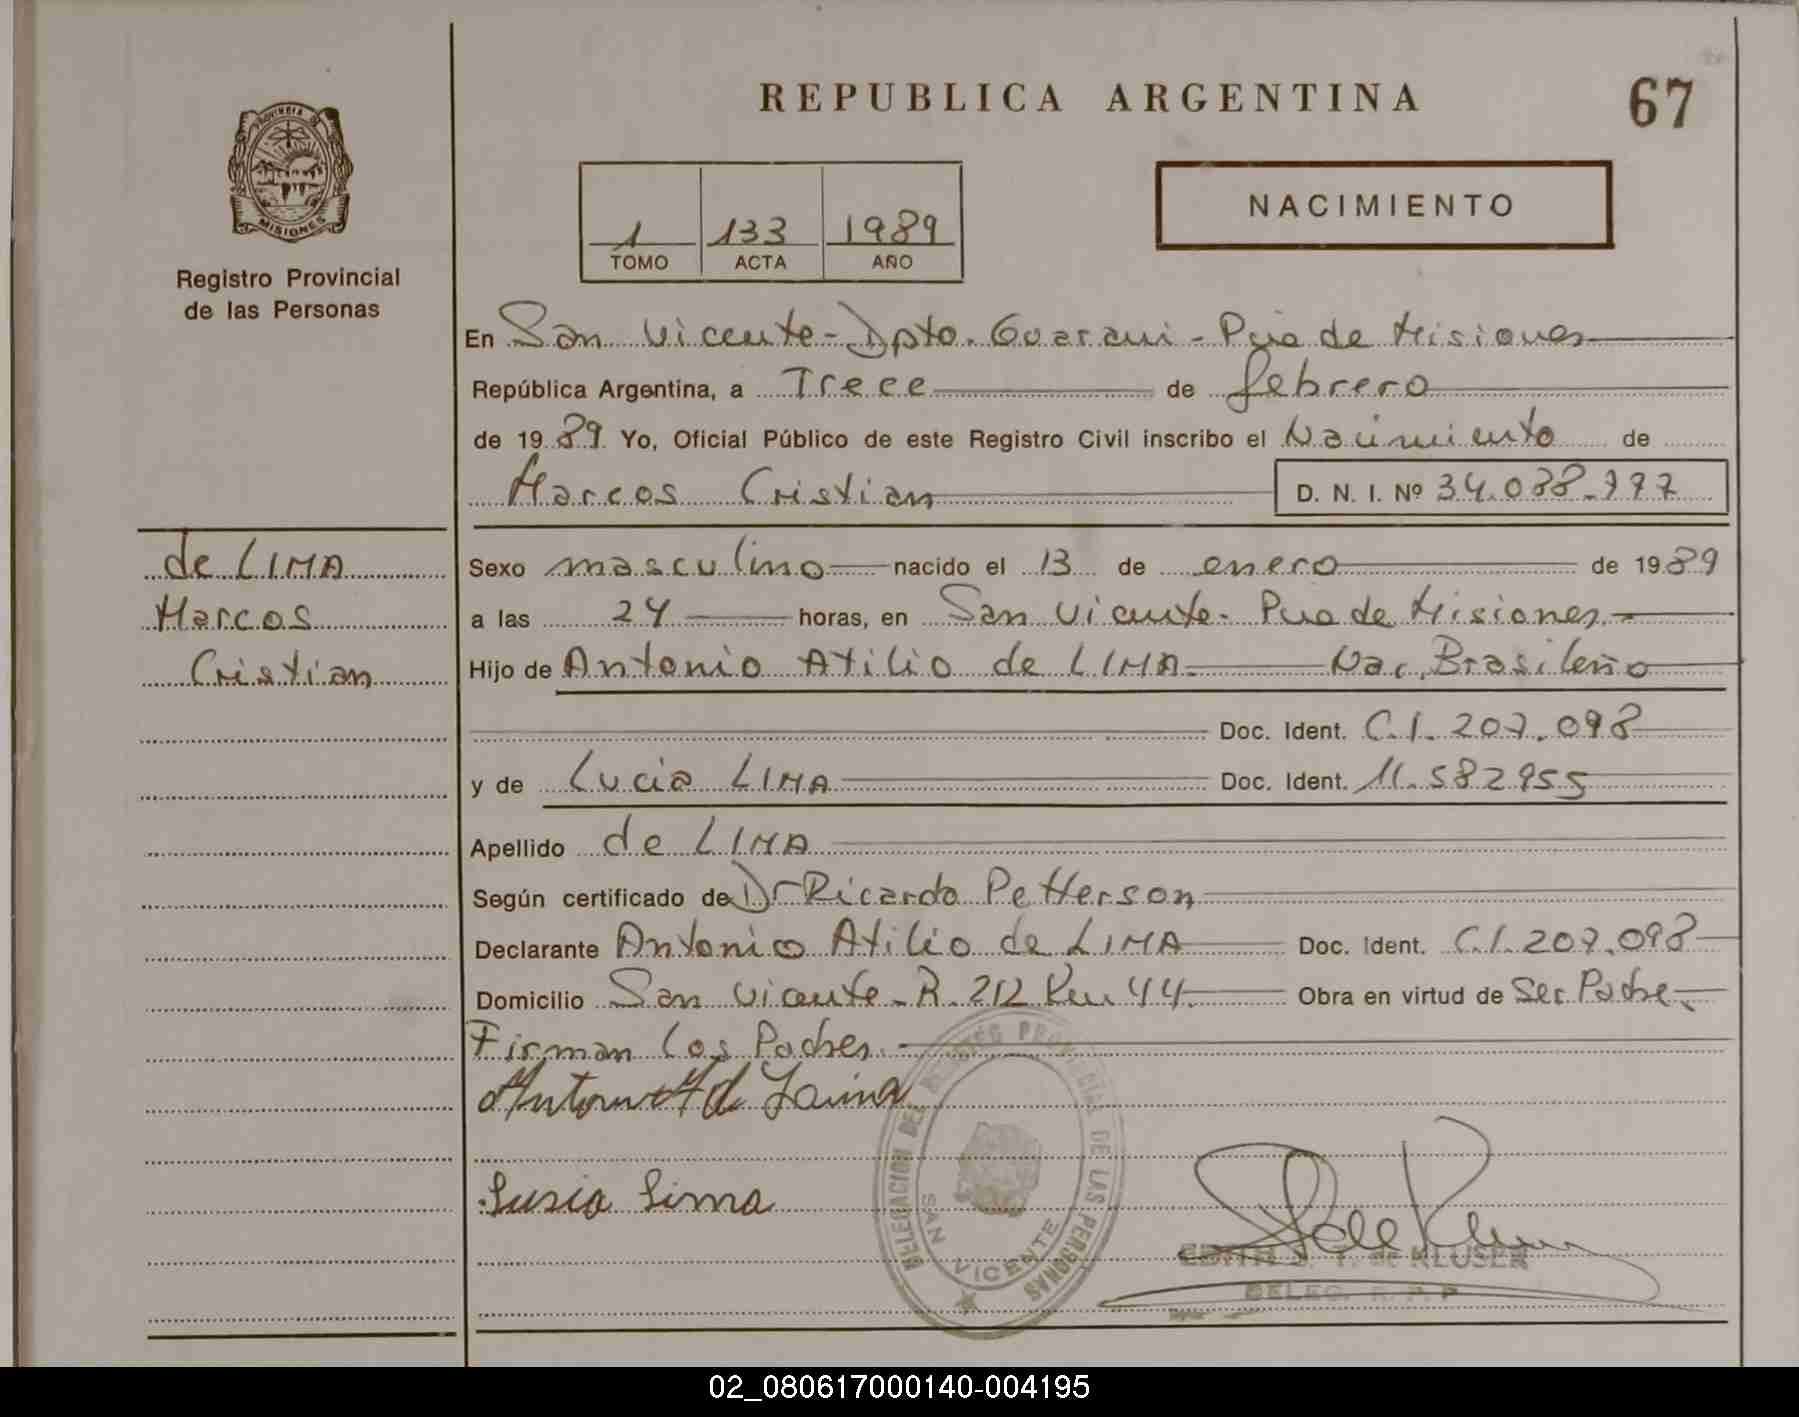 REPUBLICA ARGENTINA
67
PROVINCIA DE
MISIONES
Registro Provincial
de las Personas
1 133 1989
TOMO ACTA AÑO
NACIMIENTO
En San Vicente - Dpto. Guarani - Pcia de Misiones
República Argentina, a Trece de febrero
de 1989 Yo, Oficial Público de este Registro Civil inscribo el Nacimiento de
Marcos Cristian
D. N. I. Nº 34.088.777
de LIMA
Marcos
Cristian
Sexo masculino nacido el 13 de enero de 1989
a las 24 horas, en San Vicente - Pcia de Misiones.
Hijo de Antonio Atilio de LIMA Nac. Brasileño
Doc. Ident. C.I. 207.098
y de Lucia LIMA Doc. Ident. 11.582955
Apellido de LIMA
Según certificado de Dr Ricardo Petterson
Declarante Antonio Atilio de LIMA Doc. Ident. C.I. 207.098
Domicilio San Vicente - R. 212 Km 44. Obra en virtud de Ser Padre.
Firman los Padres.
Antonio A de Laima
Lusia Lima
DELEGACION DEL REGISTRO PROVINCIAL DE LAS PERSONAS
SAN VICENTE
EDITH S. T. de KLUSER
DELEG. R. P. P
02_080617000140-004195